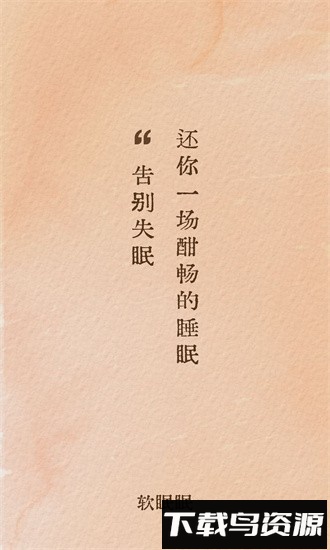 “告别失眠
还你一场酣畅的睡眠
软眠眠
下载鸟资源